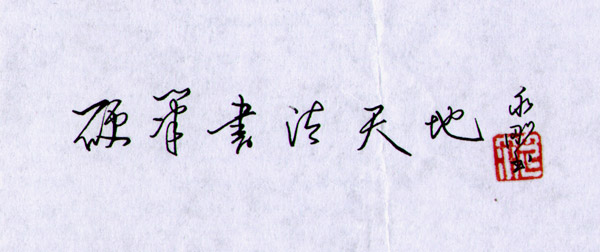 硬筆書法天地